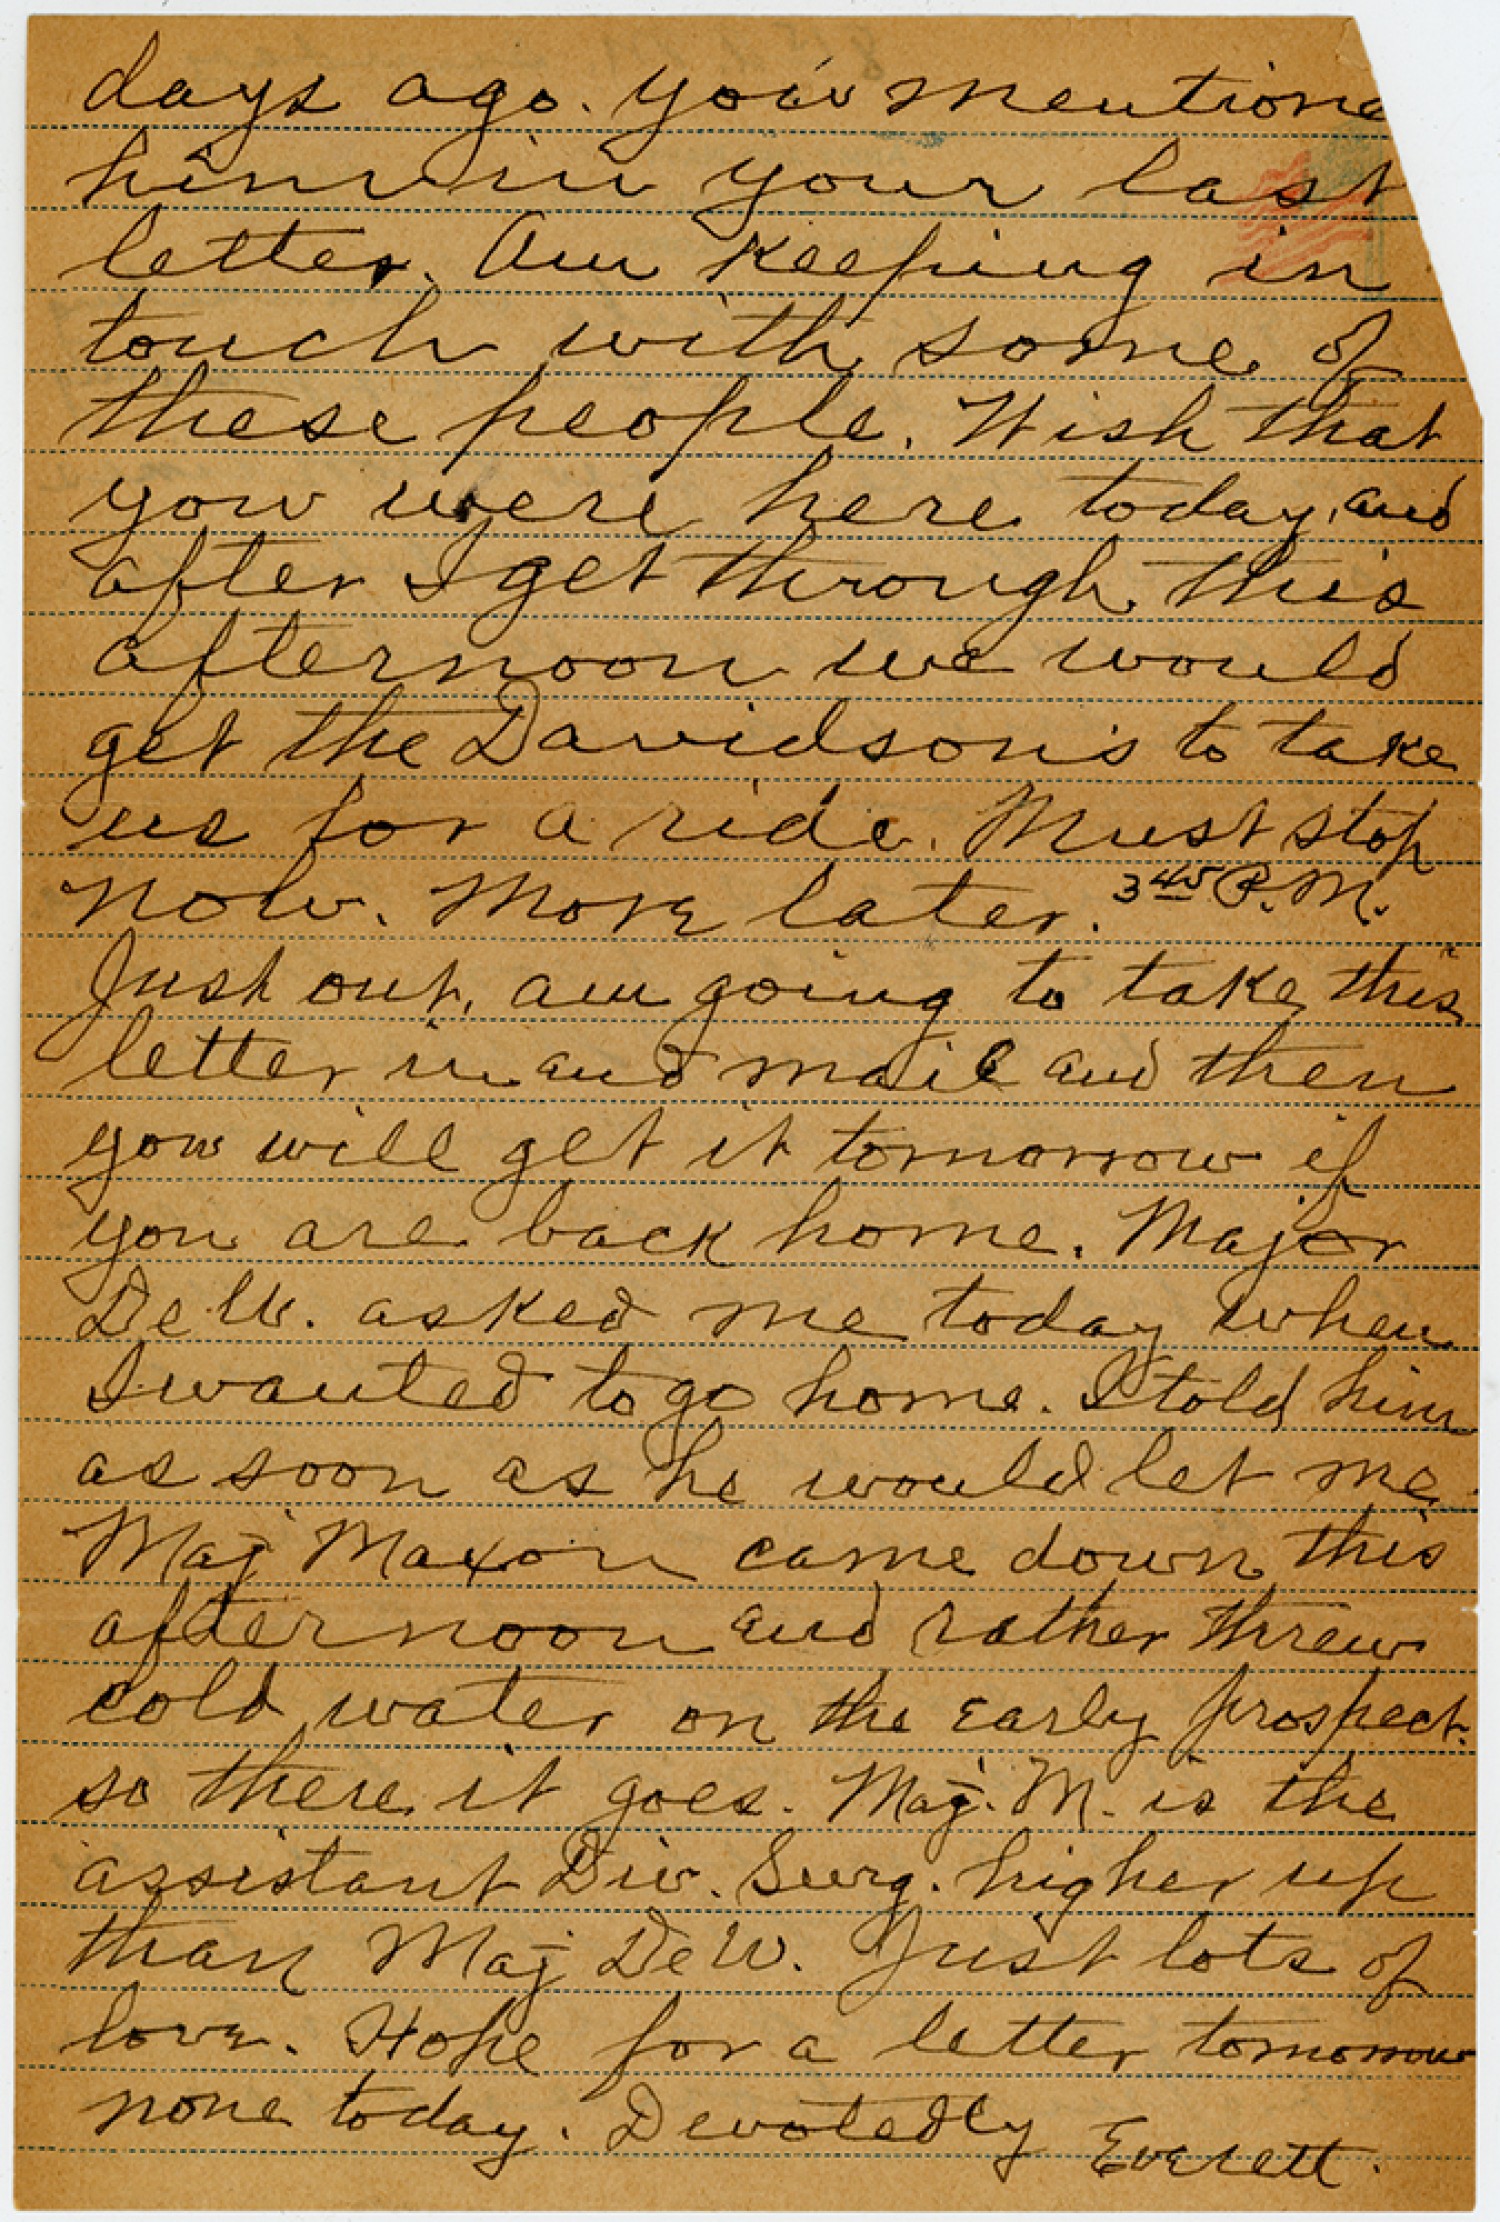 days ago. you mentione
him in your last
letter. Am keeping in
touch with some of
these people. Wish that
you were here today, and
after I get through this
afternoon we would
get the Davidson's to take
us for a ride. Must stop
now. More later. 3 45 P.M.
Just out, am going to take this
letter in and mail and then
you will get it tomorrow if
you are back home. Major
DeW. asked me today when
I wanted to go home. I told him
as soon as he would let me.
Maj Maxon came down this
afternoon and rather threw
cold water on the early prospect.
so there it goes. Maj. M. is the
assistant Div. Surg. higher up
than Maj DeW. Just lots of
love. Hope for a letter tomorrow
none today. Devotedly
Everett.